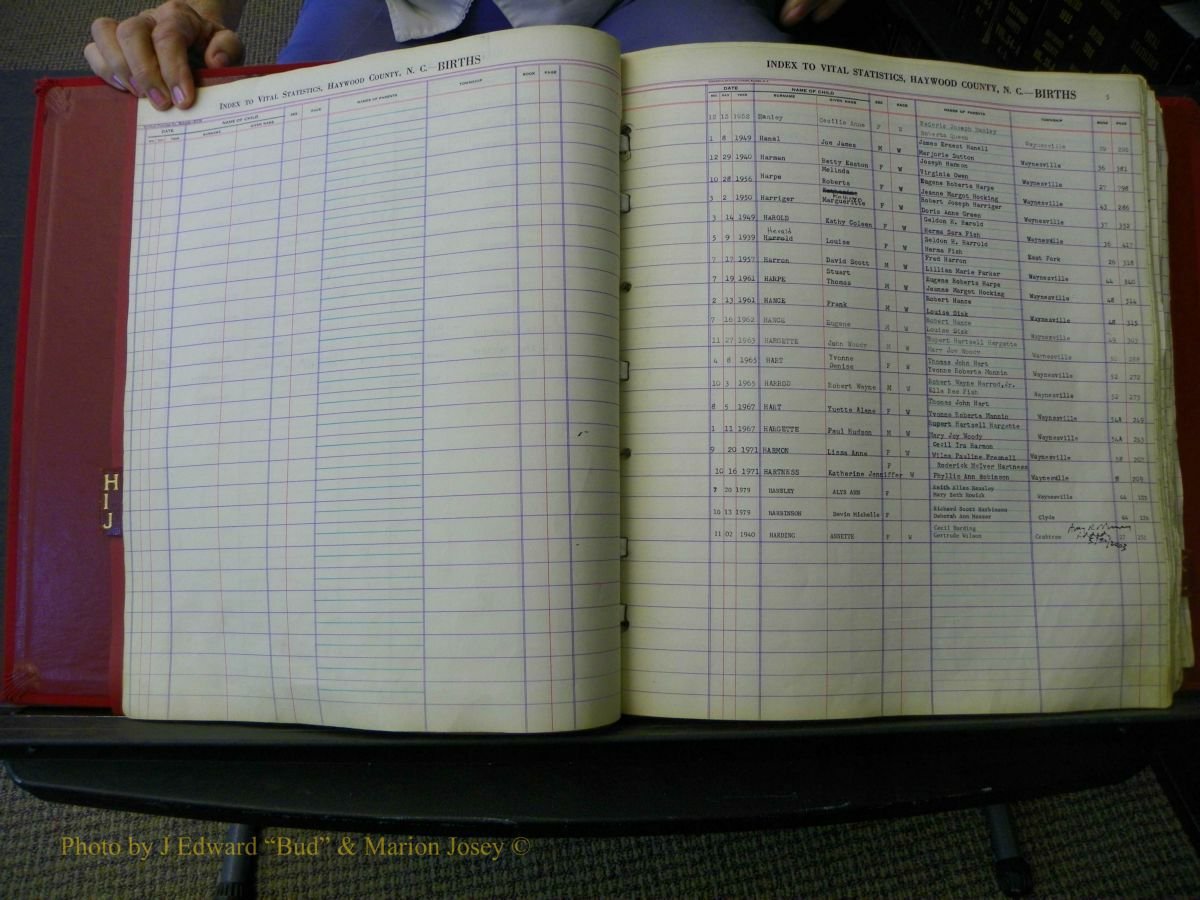 INDEX TO VITAL STATISTICS, HAYWOOD COUNTY, N. C.—BIRTHS
DATE NAME OF CHILD SEX RACE NAMES OF PARENTS TOWNSHIP BOOK PAGE
SURNAME GIVEN NAME
H
I
J
INDEX TO VITAL STATISTICS, HAYWOOD COUNTY, N. C.—BIRTHS
5
DATE NAME OF CHILD SEX RACE NAMES OF PARENTS TOWNSHIP BOOK PAGE
MO. DAY YEAR SURNAME GIVEN NAME
12 15 1952 Hanley Cecilia Anne F W Joseph Hanley
Roberta Queen Waynesville
1 8 1949 Hanel Joe James M W James Ernest Hanell
Marjorie Sutton Waynesville 36 381
12 29 1940 Harman Betty Easton F W Joseph Harmon
Virginia Owen Waynesville 27 798
10 28 1956 Harpe Melinda
Roberts F W Eugene Roberts Harpe
Jeanne Margot Hocking Waynesville 43 286
3 2 1950 Harriger Marguerite F W Robert Joseph Harriger
Doris Anne Green Waynesville 37 332
3 14 1949 HAROLD Kathy Coleen F W Geldon H. Harold
Herma Sara Fish Waynesville 36 417
5 9 1939 Harrold Herold Louise F W Seldon H. Harrold
Herma Fish East Fork 26 318
7 17 1957 Harron David Scott M W Fred Harron
Lillian Marie Parker Waynesville 44 340
7 19 1961 HARPE Stuart
Thomas M W Eugene Roberts Harpe
Jeanne Margot Hocking Waynesville 48 314
2 13 1961 HANCE Frank M W Robert Hance
Louise Sisk Waynesville 48 315
7 16 1962 HANCE Eugene M W Robert Hance
Louise Sisk Waynesville 49
11 27 1963 HARGETTE John Woody M W Rupert Hartsell Hargette
Mary Joy Woody Waynesville 50 288
4 8 1965 HART Yvonne
Denise F W Thomas John Hart
Yvonne Roberta Mannin Waynesville 52 272
10 3 1965 HARROD Robert Wayne M W Robert Wayne Harrod, Jr.
Ella Ree Fish Waynesville 52 273
8 5 1967 HART Yvette Alane F W Thomas John Hart
Yvonne Roberta Mannin Waynesville 54A 249
1 11 1967 HARGETTE Paul Hudson M W Rupert Hartsell Hargette
Mary Joy Woody Waynesville 54A 263
9 20 1971 HARMON Lissa Anne F W Cecil Ira Harmon
Wilma Pauline Presnell Waynesville 58 202
10 16 1971 HARTNESS Katherine Jenniffer F W Roderick McIver Hartness
Phyllis Ann Robinson Waynesville 209
7 20 1979 HANSLEY ALYS ANN F Keith Allen Hansley
Mary Beth Howick Waynesville 64 133
10 13 1979 HARBINSON Devin Michelle F Richard Scott Harbinson
Deborah Ann Messer Clyde 64 134
11 02 1940 HARDING ANNETTE F W Cecil Harding
Gertrude Wilson Crabtree 27
Photo by J Edward “Bud” & Marion Josey ©